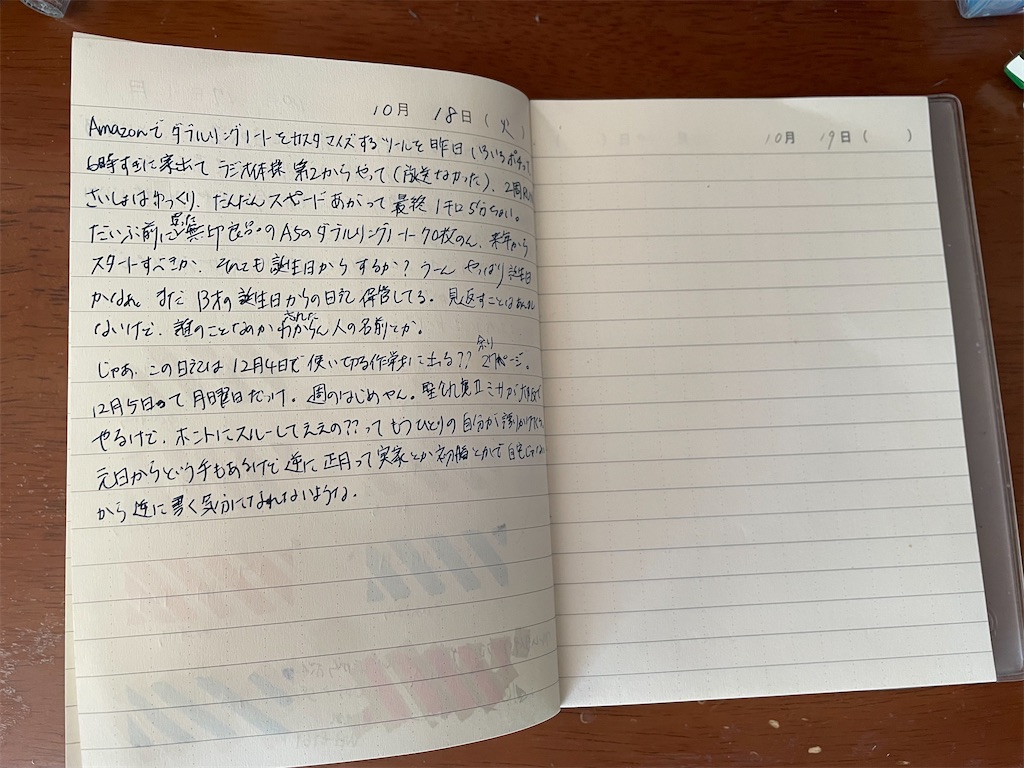 10月 18日(火)
Amazonで ダブルリングノートをカスタマイズするツールを昨日 いろいろポチって
6時すぎに家出て ラジオ体操 第2からやって(放送なかった)、2周
さいしょはゆっくり、だんだんスピードあがって 最終 1キロ 5分ちょい。
だいぶ前に買った無印良品のA5のダブルリングノート 70枚のん、来年から
スタートすべきか、それとも誕生日からするか? うーん やっぱり誕生日
かなぁ まだ 13才の誕生日からの日記 保管してる。見返すことはあんま
ないけど、誰のことなのか わからん人の名前とか。
じゃあ、この日記は 12月4日で使い切る作戦に出る?? 余り27ページ。
12月5日って月曜日だっけ。週のはじめやん。
やるけど、ホントにスルーしてええの??って もうひとりの自分が語りかけて
元日からという手もあるけど 逆に 正月って 実家とか 初詣とかで 自宅じゃない
から 逆に 書く気分になれないような。
10月 19日( )